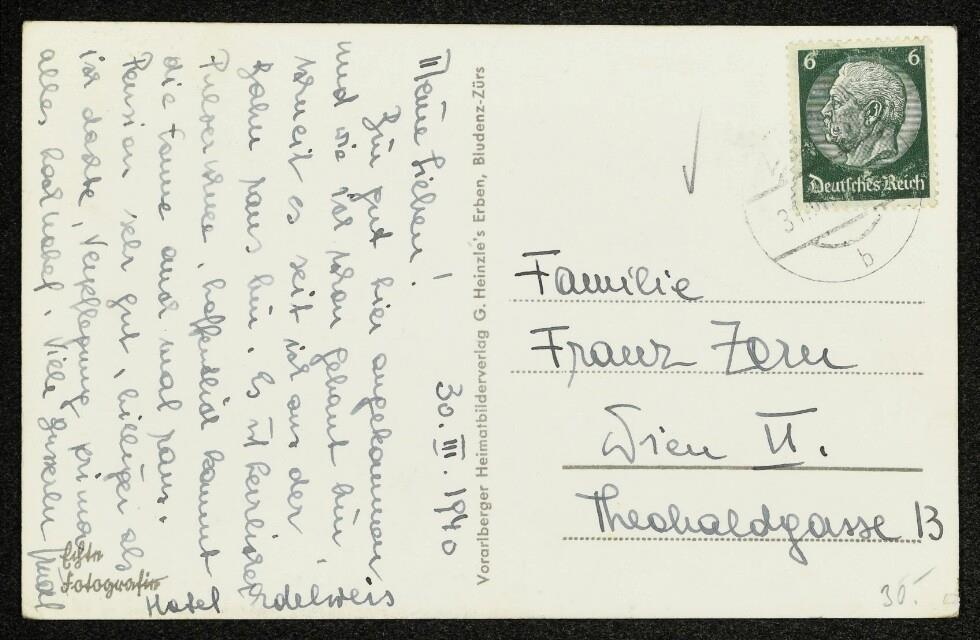 Meine Lieben! 30. III. 1940
Bin gut hier angekommen
und wie ich schon gehaut bin,
schneit es seit ich aus der
Bahn raus bin. Es ist herrlicher
Pulverschnee, hoffentlich kommt
die Sonne auch mal raus.
Pension sehr gut, billiger als
ich dachte, Verpflegung prima
alles hochnobel. Viele Busserln
Hotel Edelweis
Echte
Fotografie
Vorarlberger Heimatbilderverlag G. Heinzle's Erben, Bludenz-Zürs
6 6
Deutsches Reich
b
Familie
Franz Zorn
Wien II.
Theobaldgasse 13
30.-